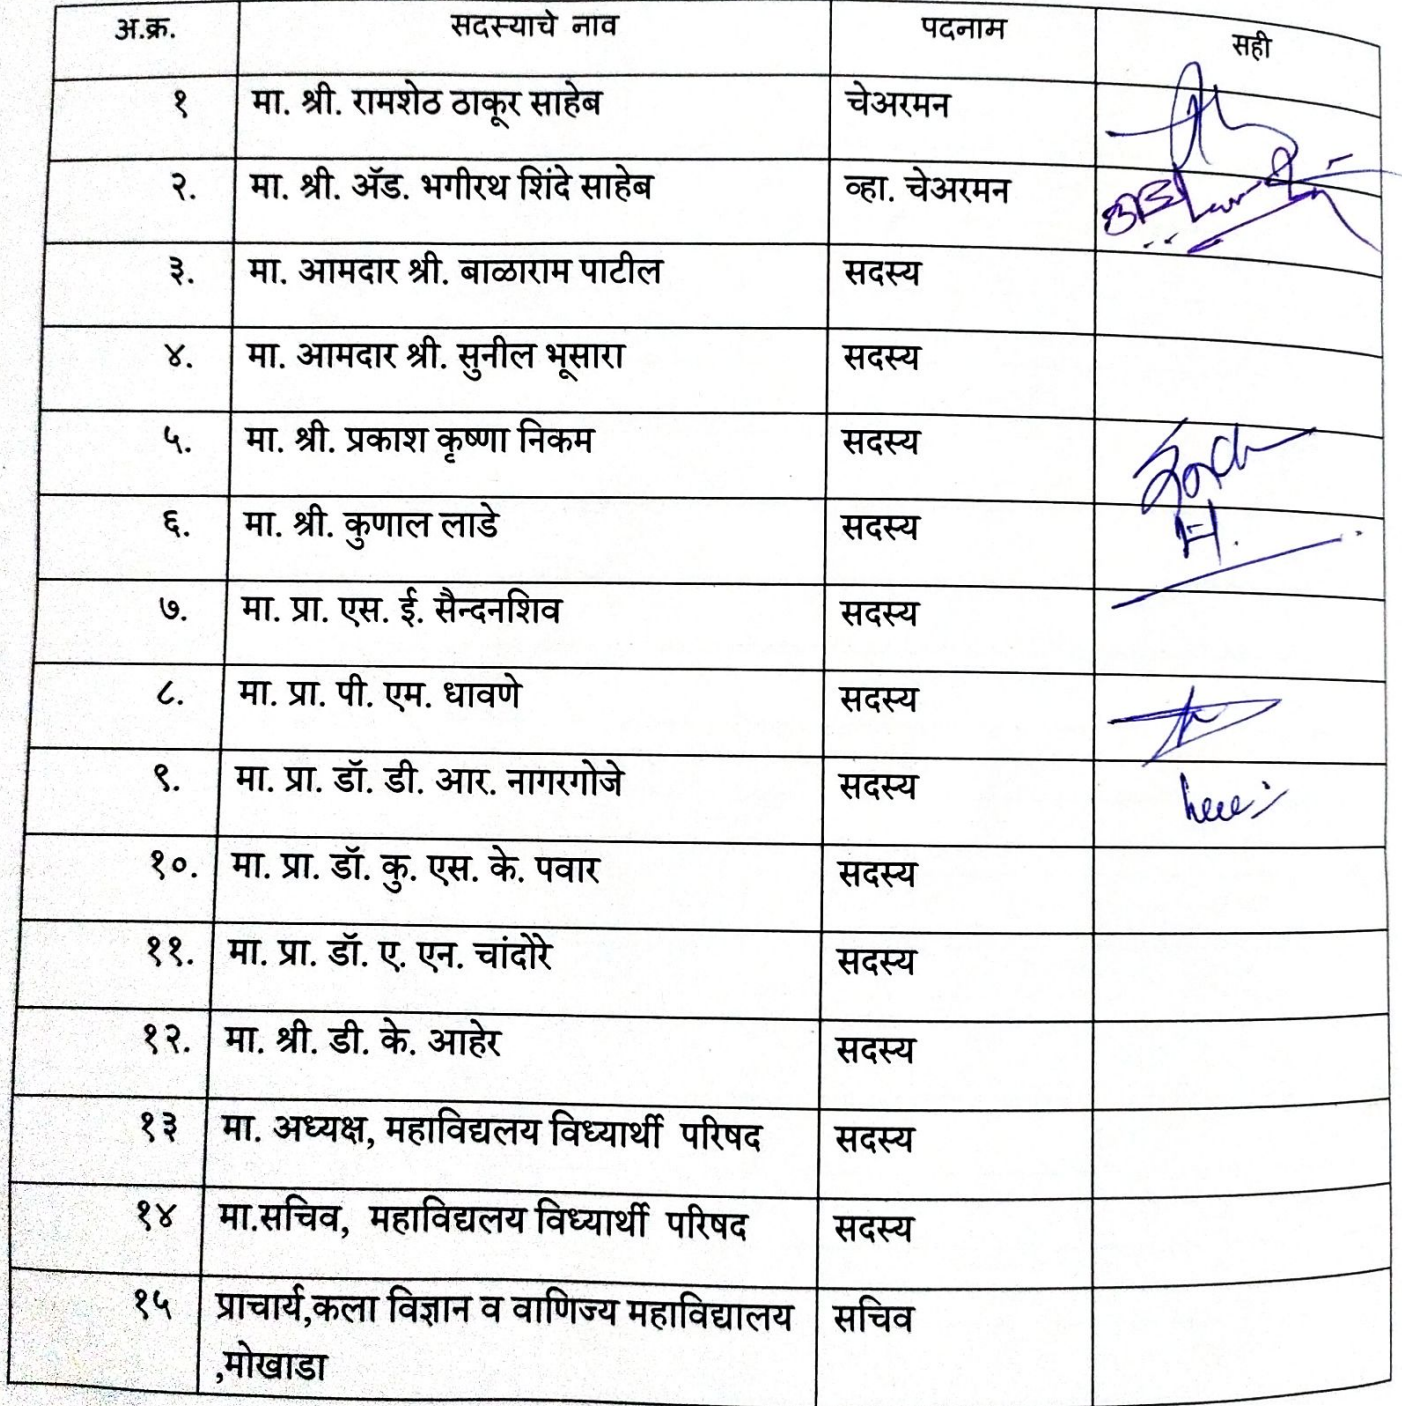 अ.क्र. सदस्याचे नाव पदनाम सही
१ मा. श्री. रामशेठ ठाकूर साहेब चेअरमन
२. मा. श्री. ॲड. भगीरथ शिंदे साहेब व्हा. चेअरमन
३. मा. आमदार श्री. बाळाराम पाटील सदस्य
४. मा. आमदार श्री. सुनील भूसारा सदस्य
५. मा. श्री. प्रकाश कृष्णा निकम सदस्य
६. मा. श्री. कुणाल लाडे सदस्य
७. मा. प्रा. एस. ई. सैन्दनशिव सदस्य
८. मा. प्रा. पी. एम. धावणे सदस्य
९. मा. प्रा. डॉ. डी. आर. नागरगोजे सदस्य
१०. मा. प्रा. डॉ. कु. एस. के. पवार सदस्य
११. मा. प्रा. डॉ. ए. एन. चांदोरे सदस्य
१२. मा. श्री. डी. के. आहेर सदस्य
१३ मा. अध्यक्ष, महाविद्यलय विध्यार्थी परिषद सदस्य
१४ मा.सचिव, महाविद्यलय विध्यार्थी परिषद सदस्य
१५ प्राचार्य,कला विज्ञान व वाणिज्य महाविद्यालय सचिव
,मोखाडा